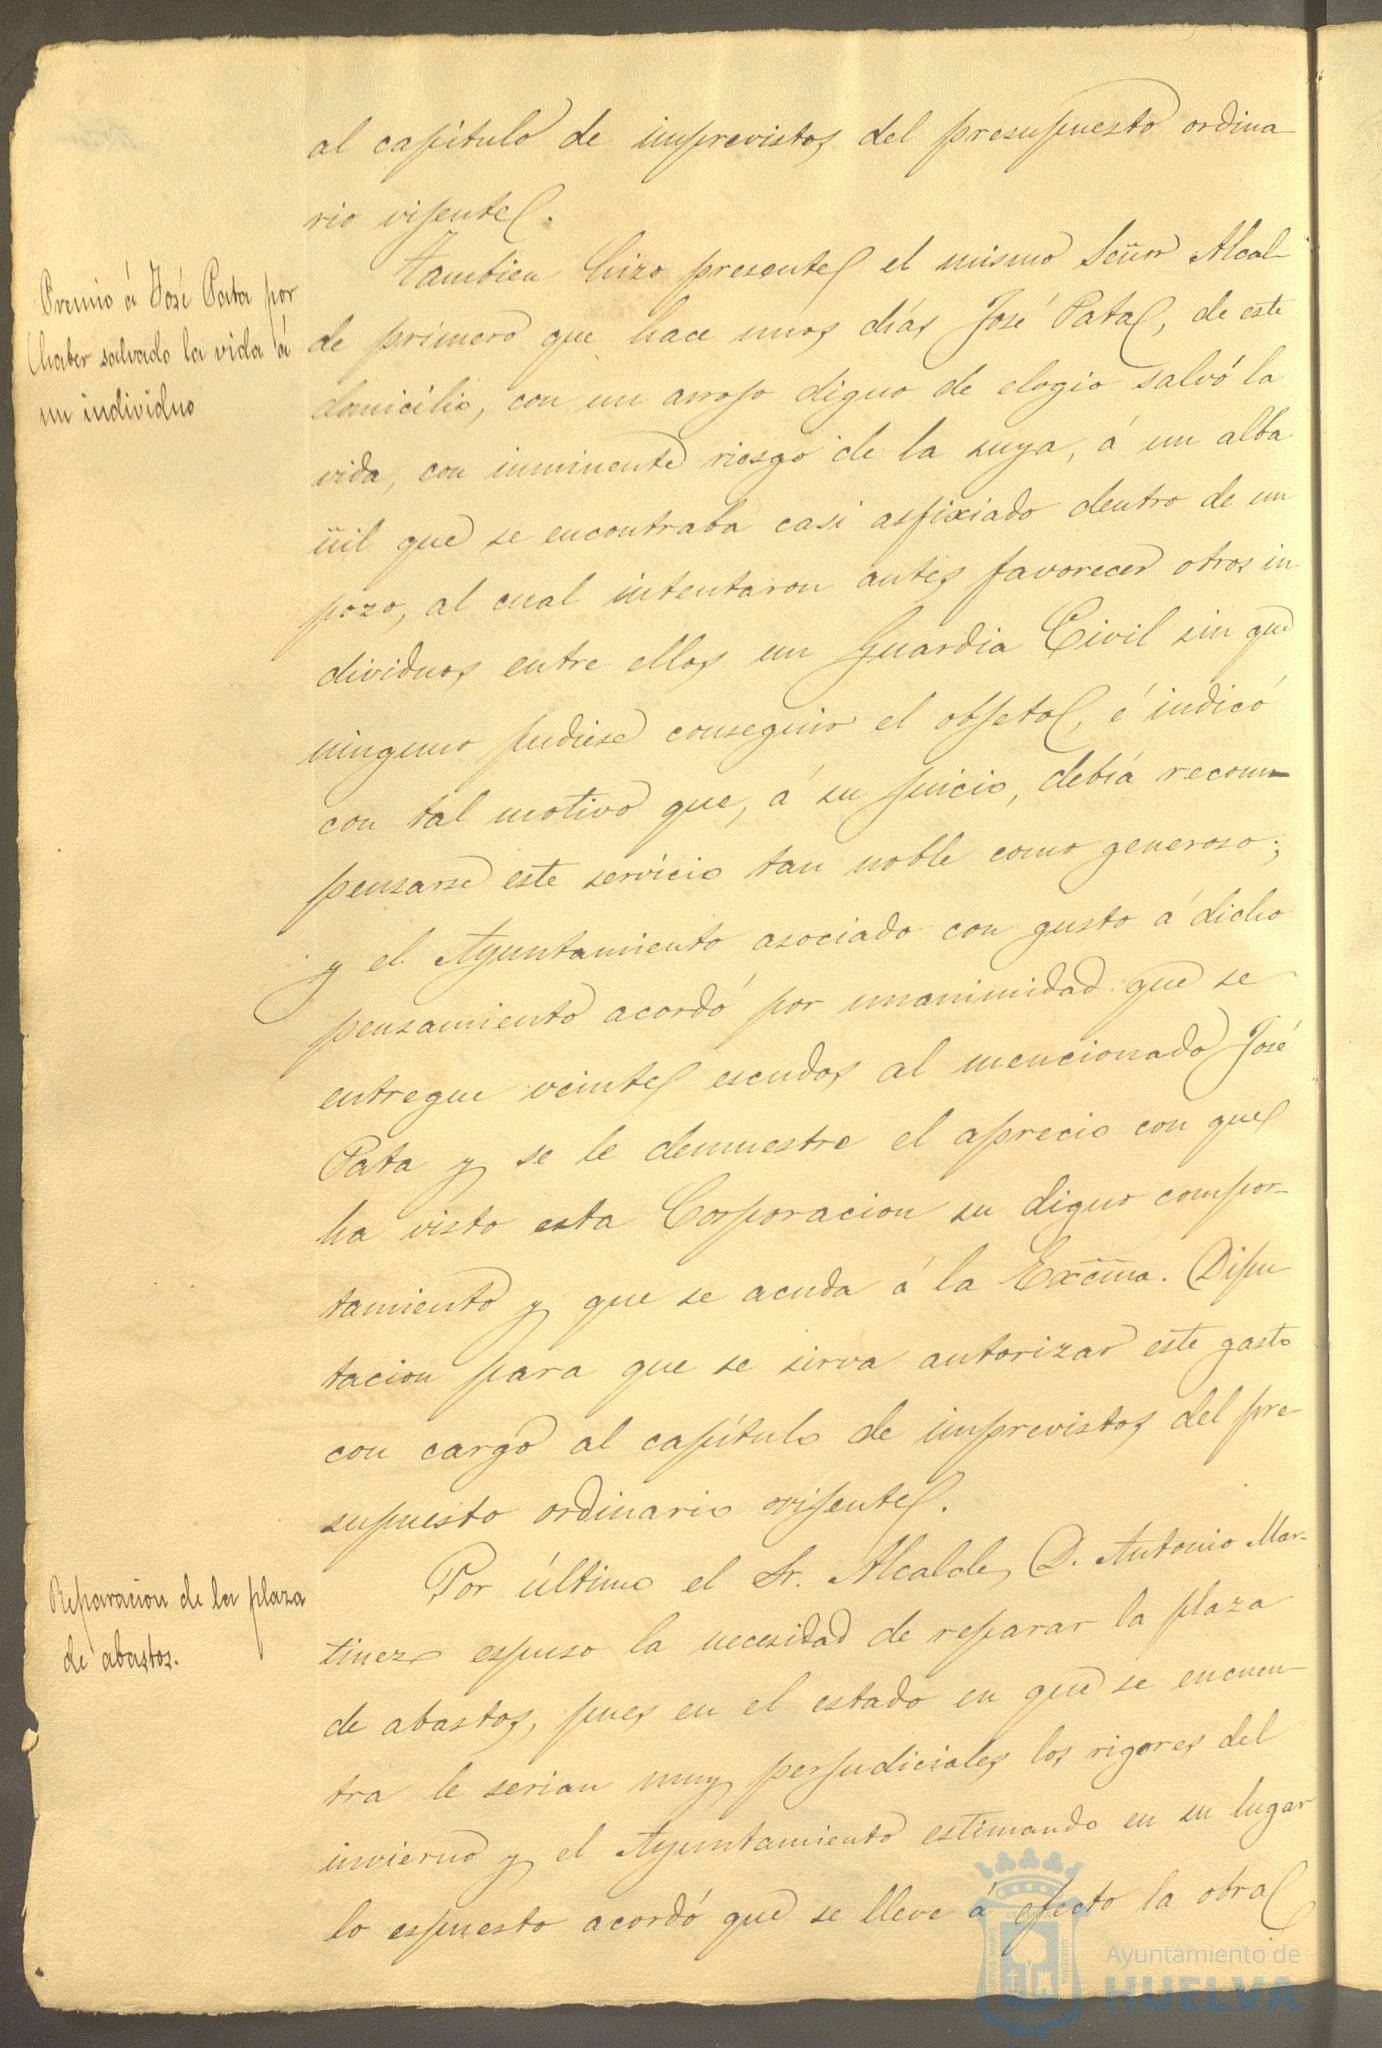 al capítulo de imprevistos del presupuesto ordina
rio vijente.
Premio á José Pata por
haber salvado la vida á
un individuo
Tambien hizo presente el mismo Señor Alcal-
de primero que hace unos dias José Pata, de este
domicilio, con un arrojo digno de elogio salvó la
vida, con inminente riesgo de la suya, á un alba
ñil que se encontraba casi asfixiado dentro de un
pozo, al cual intentaron antes favorecer otros in
dividuos entre ellos un Guardia Civil sin que
ninguno pudiese conseguir el objeto, é indicó
con tal motivo que, á su juicio, debia recom-
pensarse este servicio tan noble como generoso;
y el Ayuntamiento asociado con gusto á dicho
pensamiento acordó por unanimidad que se
entregue veinte escudos al mencionado José
Pata y se le demuestre el aprecio con que
ha visto esta Corporacion su digno compor-
tamiento y que se acuda á la Excma. Dipu
tacion para que se sirva autorizar este gasto
con cargo al capítulo de imprevistos del pre
supuesto ordinario vijente.
Reparacion de la plaza
de abastos.
Por último el Sr. Alcalde, D. Antonio Mar-
tinez espuso la necesidad de reparar la plaza
de abastos, pues en el estado en que se encuen
tra le serian muy perjudiciales los rigores del
invierno y el Ayuntamiento estimando en su lugar
lo espuesto acordó que se lleve á efecto la obra
Ayuntamiento de
HUELVA